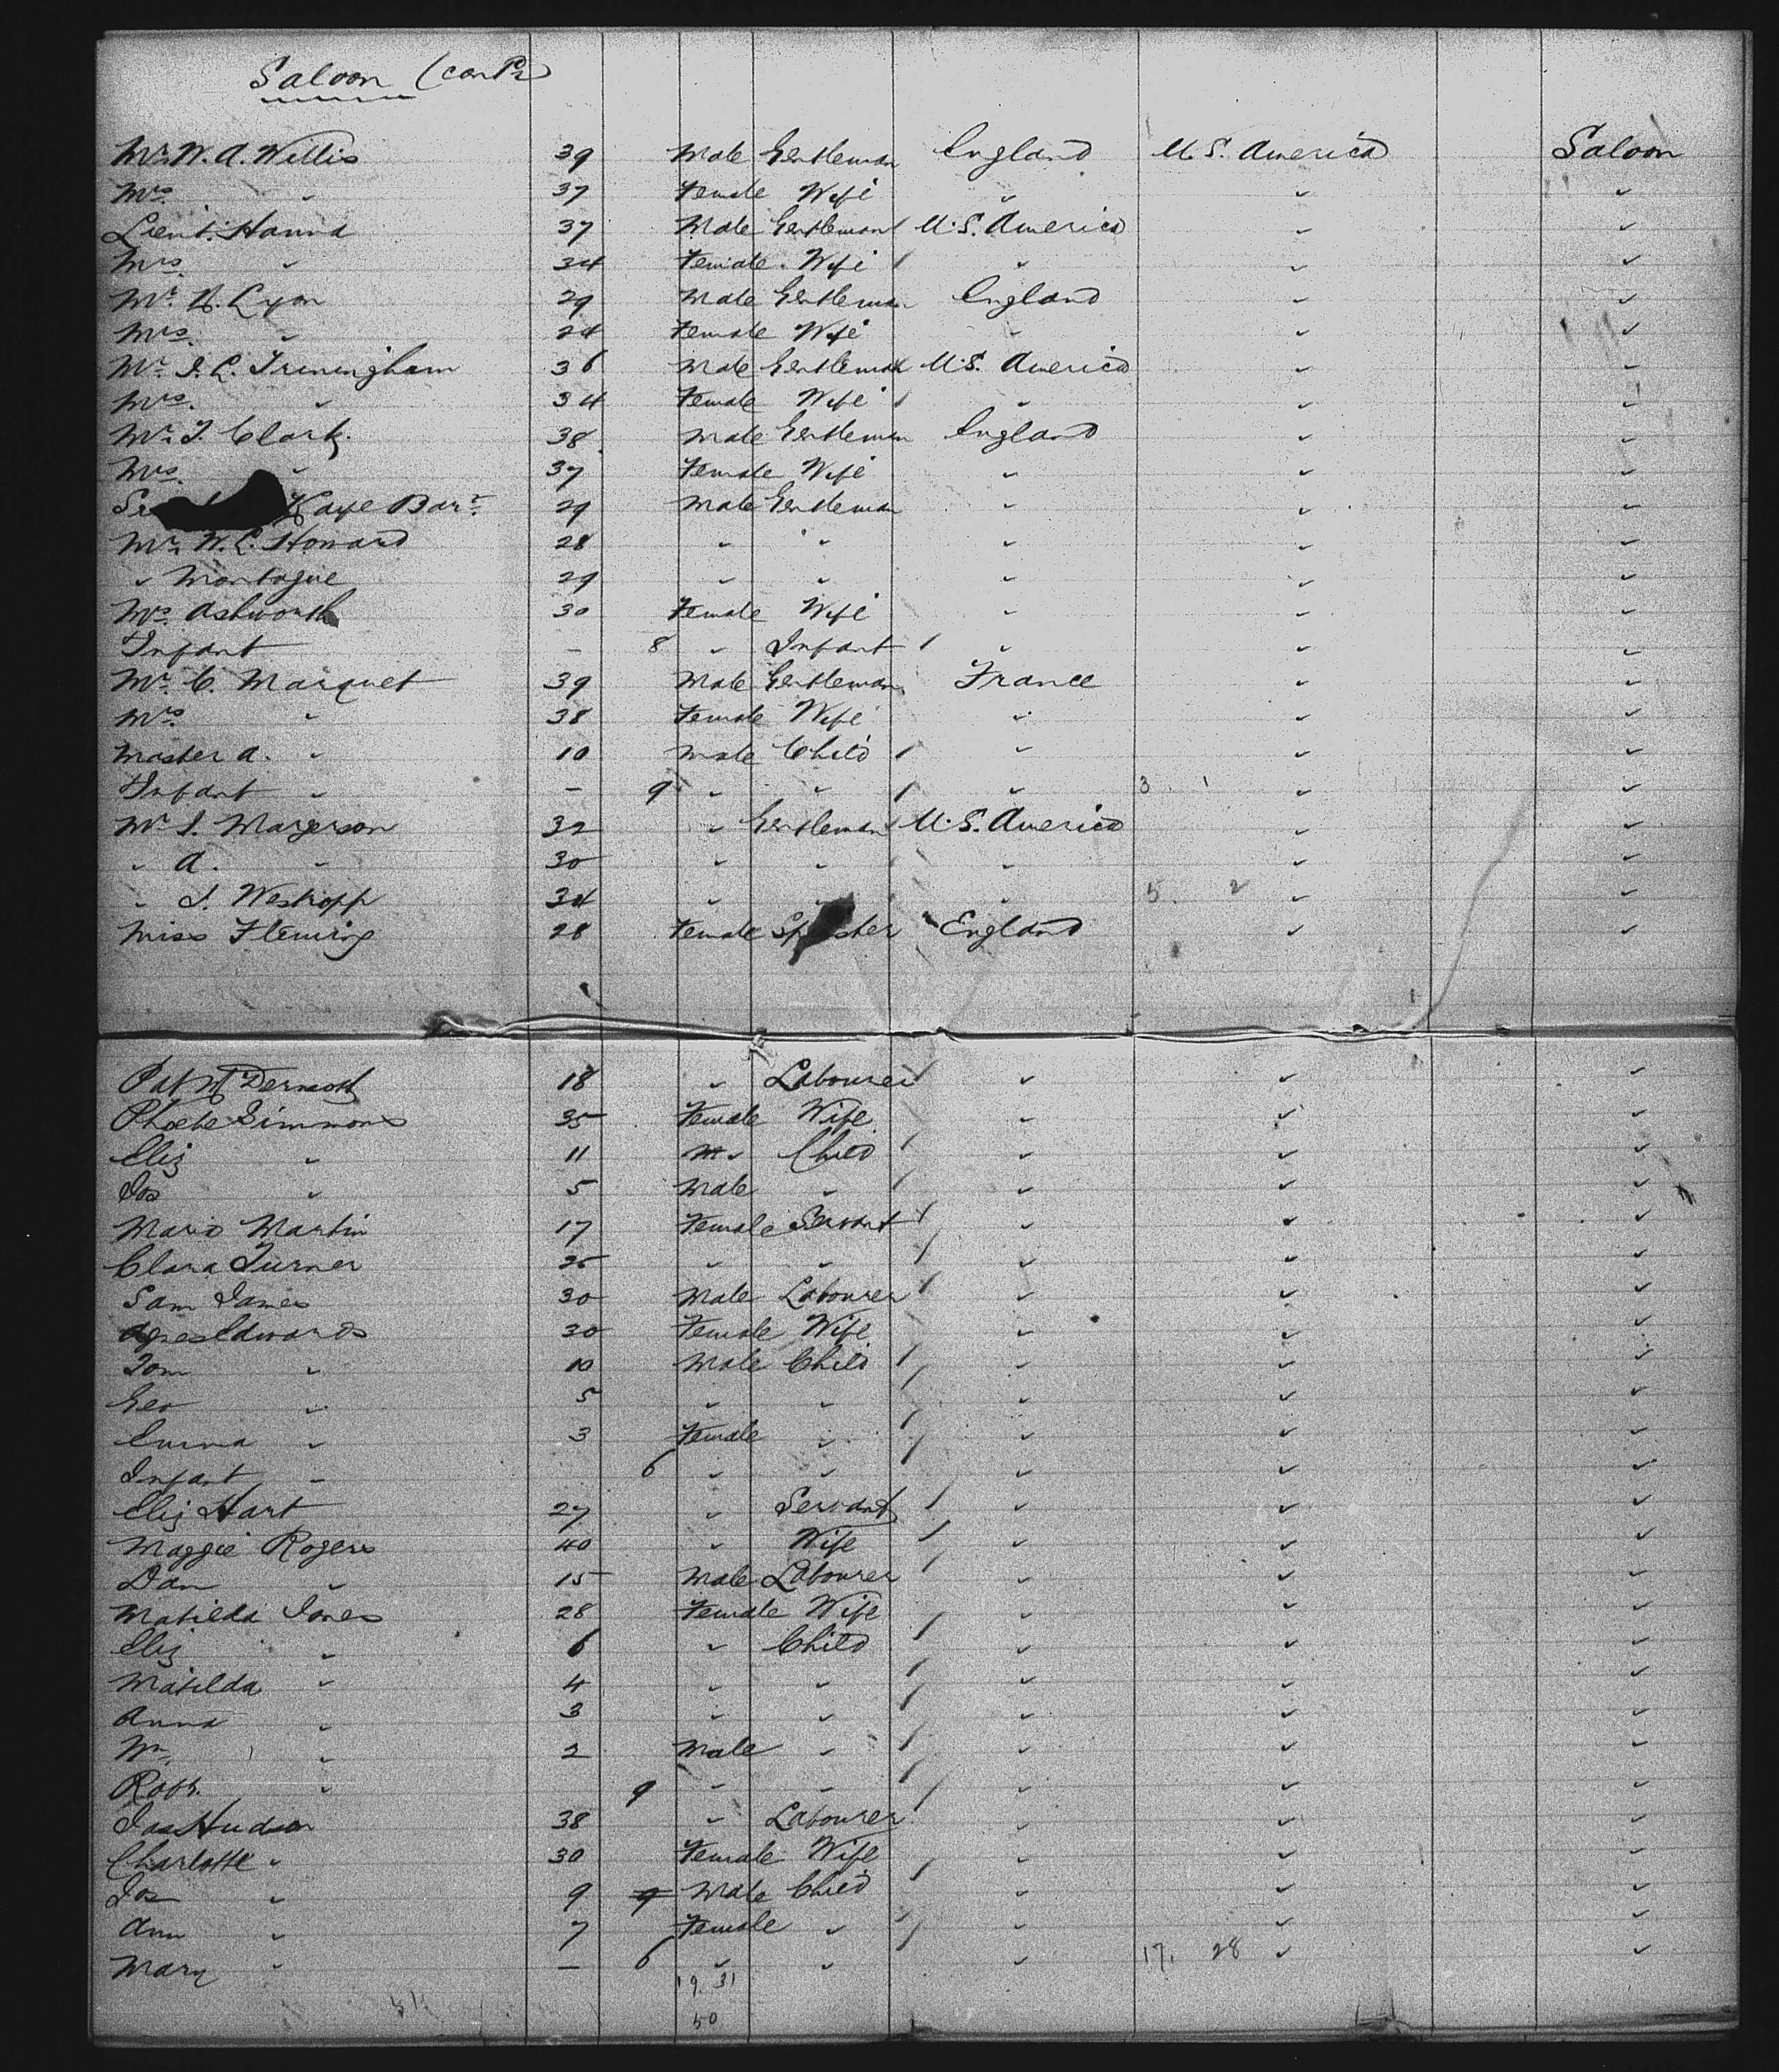 Saloon (Contd)
Mr. W. A. Willis 39 Male Gentleman England U. S. America Saloon
Mrs. " 37 Female Wife " " "
Lieut. Hanna 37 Male Gentleman U. S. America " "
Mrs. " 34 Female Wife " " "
Mr. H. Lyon 29 Male Gentleman England " "
Mrs. " 24 Female Wife " " "
Mr. J. C. Trimingham 36 Male Gentleman U. S. America " "
Mrs. " 34 Female Wife " " "
Mr. J. Clark. 38 Male Gentleman England " "
Mrs. " 37 Female Wife " " "
Kaye Bart. 29 Male Gentleman " " "
Mr. W. C. Howard 28 " " " " "
" Montague 29 " " " " "
Mrs. Ashworth 30 Female Wife " " "
Infant - 8 " Infant " " "
Mr. C. Marquet 39 Male Gentleman France " "
Mrs. " 38 Female Wife " " "
Master A. " 10 Male Child " " "
Infant " - 9 " " " 3 1 " "
Mr. J. Margerson 32 " Gentleman U. S. America " "
" A. " 30 " " " " "
" J. Westropp 34 " " " 5 2 " "
Miss Fleming 28 Female England " "
Pat McDermott 18 " Labourer " " "
Phoebe Simmons 35 Female Wife " " "
Eliz " 11 " Child " " "
Jos " 5 Male " " " "
Maria Martin 17 Female Servant " " "
Clara Turner 25 " " " " "
Sam James 30 Male Labourer " " "
Agnes Edwards 30 Female Wife " " "
Tom " 10 Male Child " " "
Geo " 5 " " " " "
Emma " 3 Female " " " "
Infant " 6 " " " " "
Eliz Hart 27 " Servant " " "
Maggie Rogers 40 " Wife " " "
Dan " 15 Male Labourer " " "
Matilda Jones 28 Female Wife " " "
Eliz " 6 " Child " " "
Matilda " 4 " " " " "
Anna " 3 " " " " "
Wm. " 2 Male " " " "
Robt. " 9 " " " " "
Jas Hudson 38 " Labourer " " "
Charlotte " 30 Female Wife " " "
Jos " 9 9 Male Child " " "
Ann " 7 Female " " " "
Mary " - 6 " " " 17. 28 " "
19. 31
50